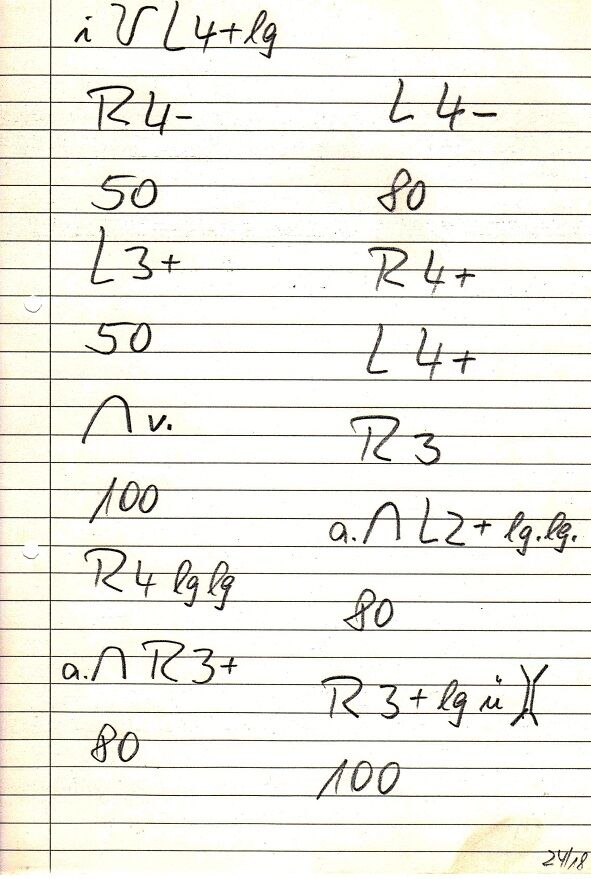 i ᑌ L 4+lg
R 4-
50
L 3+
50
∩ v.
100
R 4 lg lg
a.∩ R 3+
80
L 4-
80
R 4+
L 4+
R 3
a.∩ L 2+ lg.lg.
80
R 3+lg ü )(
100
24/18